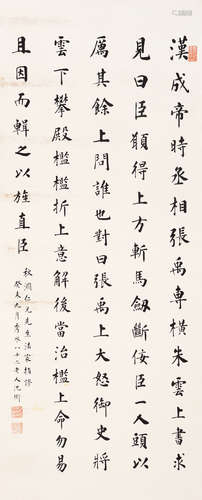 漢成帝時丞相張禹專橫朱雲上書求
見曰臣願得上方斬馬劔斷佞臣一人頭以
厲其餘上問誰也對曰張禹上大怒御史將
雲下攀殿檻檻折上意解後當治檻上命勿易
且因而輯之以旌直臣
秋湄仁兄先生法家指謬
癸亥九月秀水八十二老人沈衛